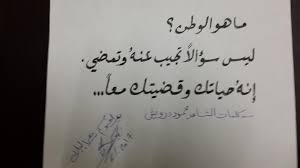 ما هو الوطن؟
ليس سؤالاً تجيب عنهُ وتمضي.
إنهُ حياتك وقضيتك معاً...
كلمات الشاعر محمود درويش